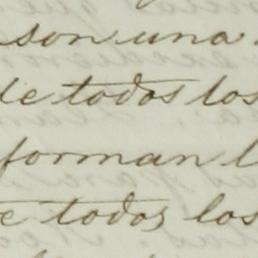 son una
de todos los
forman l
e todos los